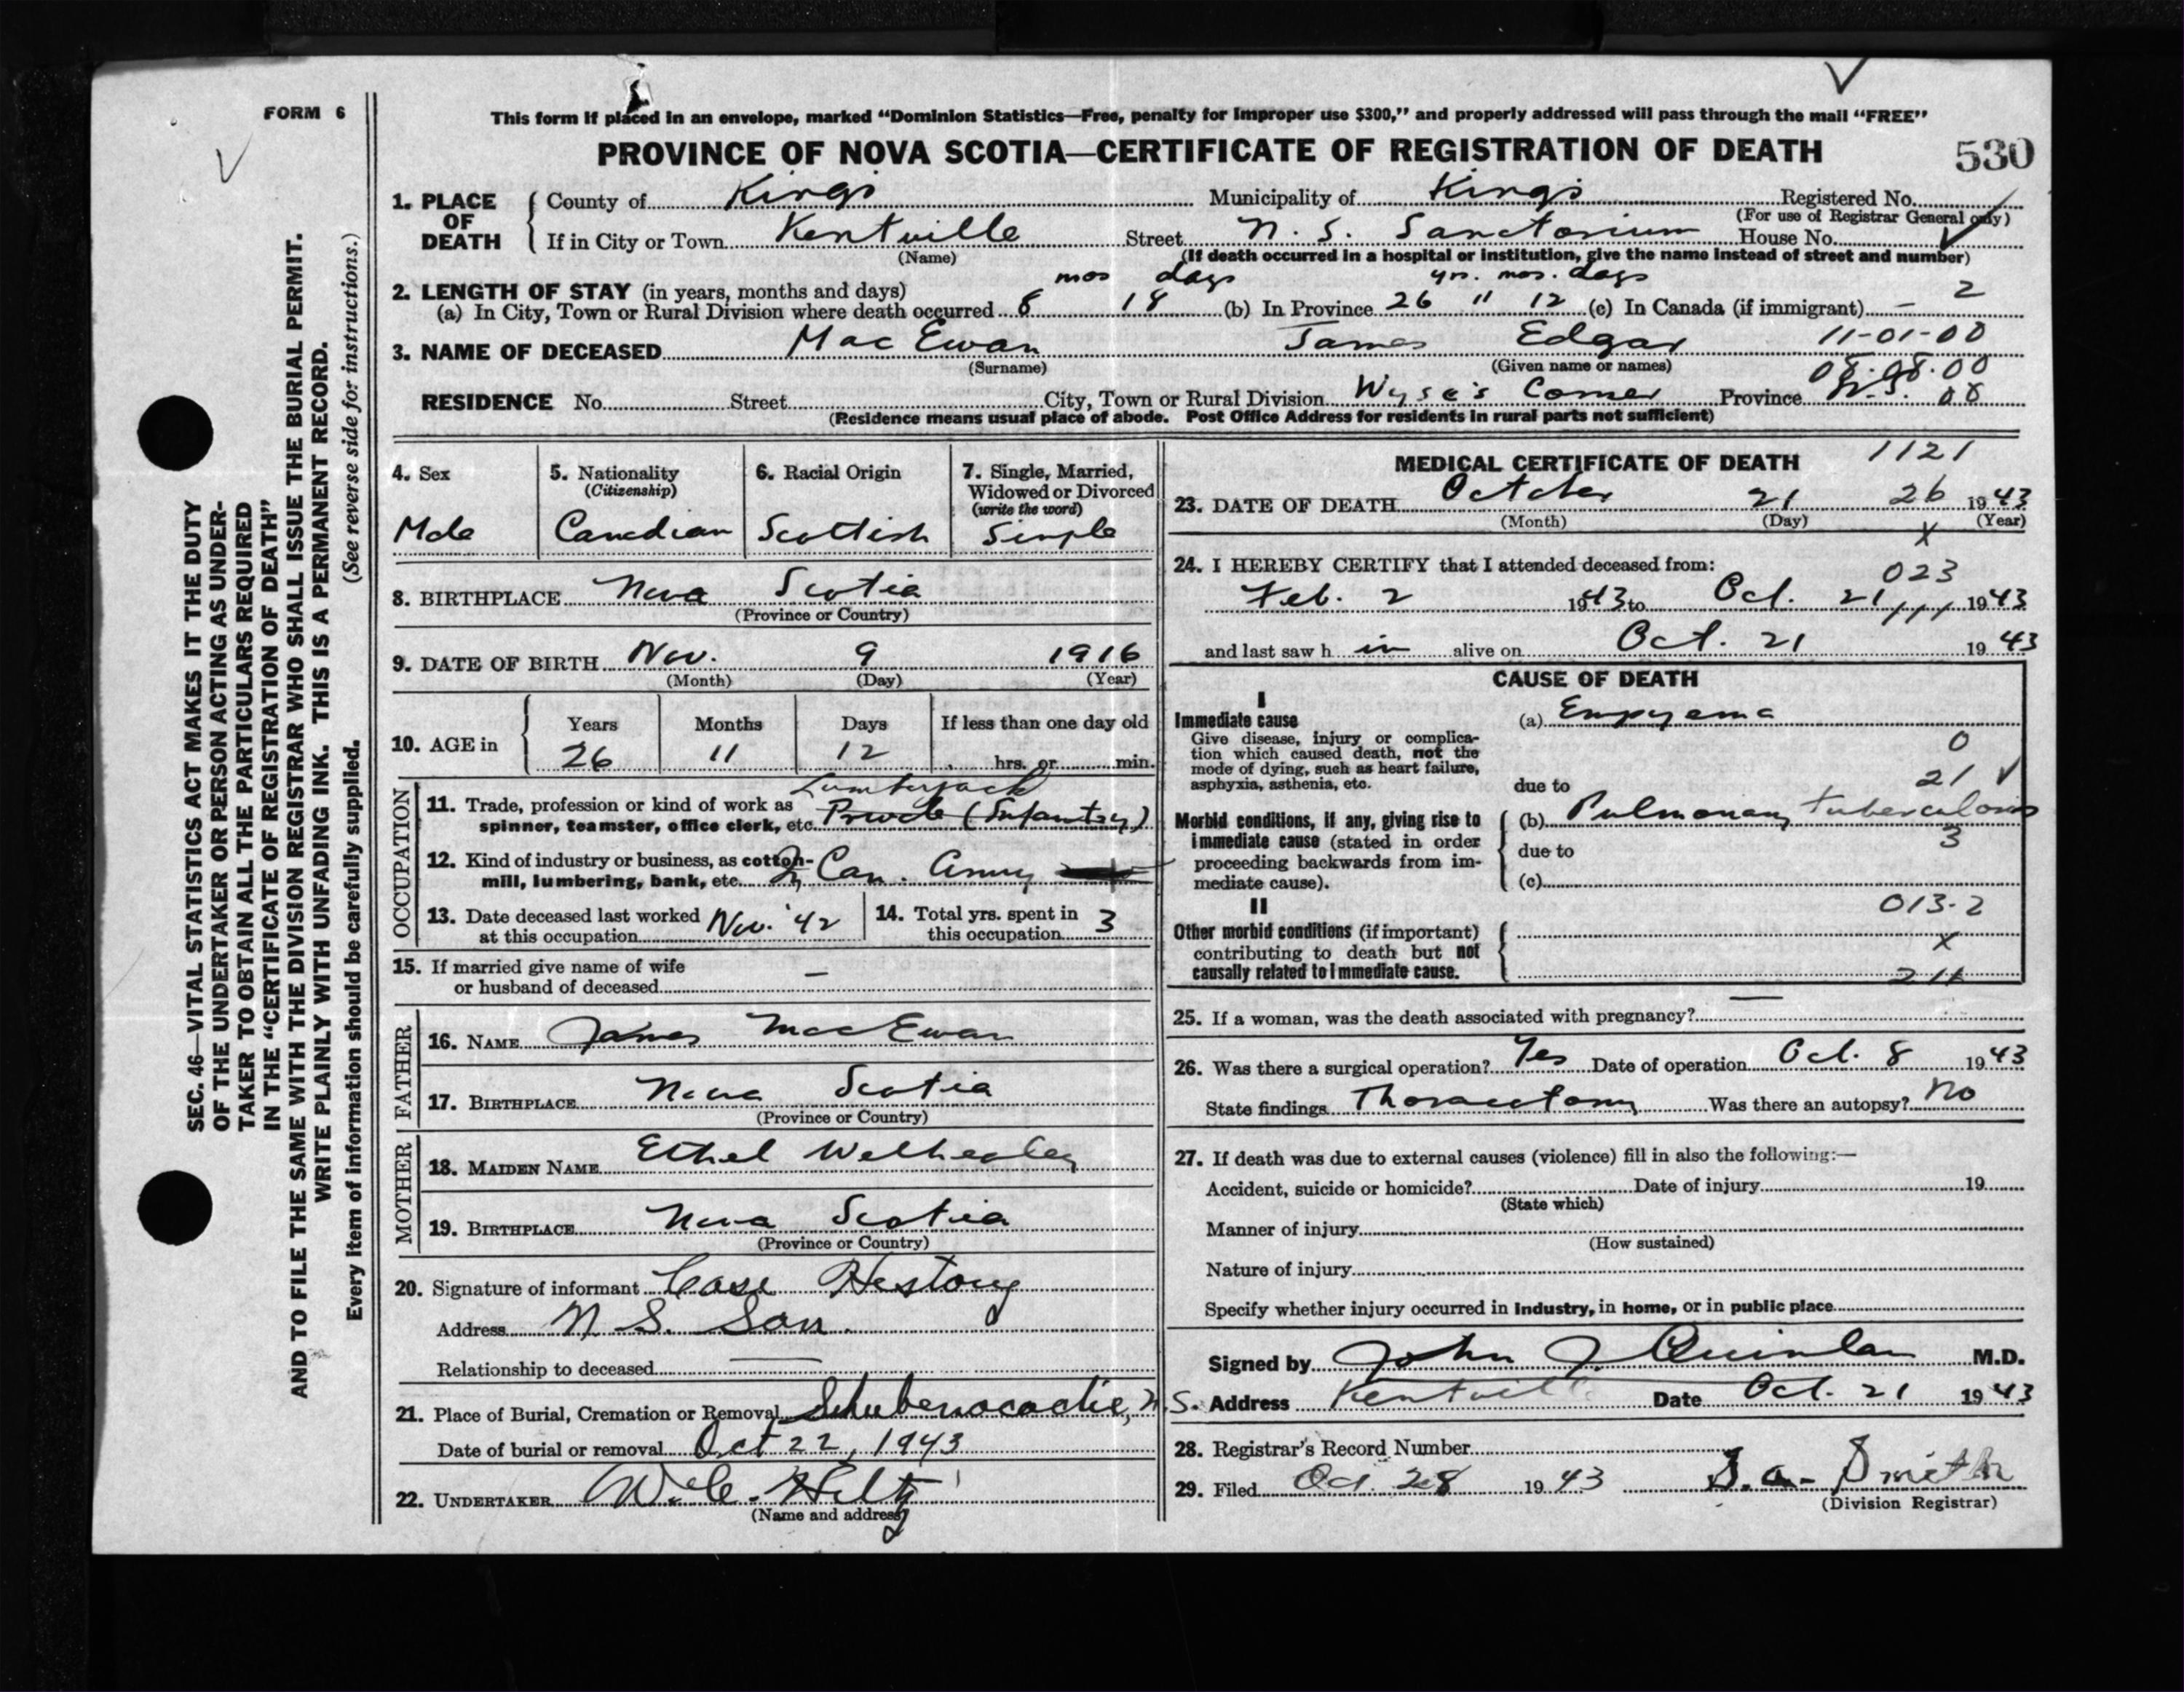 FORM 6
SEC. 46—VITAL STATISTICS ACT MAKES IT THE DUTY
OF THE UNDERTAKER OR PERSON ACTING AS UNDER-
TAKER TO OBTAIN ALL THE PARTICULARS REQUIRED
IN THE "CERTIFICATE OF REGISTRATION OF DEATH"
AND TO FILE THE SAME WITH THE DIVISION REGISTRAR WHO SHALL ISSUE THE BURIAL PERMIT.
WRITE PLAINLY WITH UNFADING INK. THIS IS A PERMANENT RECORD.
Every item of information should be carefully supplied. (See reverse side for instructions.)
This form if placed in an envelope, marked "Dominion Statistics—Free, penalty for improper use $300," and properly addressed will pass through the mail "FREE"
PROVINCE OF NOVA SCOTIA—CERTIFICATE OF REGISTRATION OF DEATH 530
1. PLACE OF DEATH County of Kings Municipality of Kings Registered No.
(For use of Registrar General only)
If in City or Town Kentville Street N. S. Sanctorium House No.
(Name) (If death occurred in a hospital or institution, give the name instead of street and number)
mos days yrs. mos. days
2. LENGTH OF STAY (in years, months and days)
(a) In City, Town or Rural Division where death occurred 8 18 (b) In Province 26 11 12 (c) In Canada (if immigrant) – 2
3. NAME OF DECEASED Mac Ewan James Edgar 11-01-00
(Surname) (Given name or names) 08.08.00
RESIDENCE No. Street City, Town or Rural Division Wyse's Corner Province N.S. 08
(Residence means usual place of abode. Post Office Address for residents in rural parts not sufficient)
4. Sex
Male
5. Nationality
(Citizenship)
Canadian
6. Racial Origin
Scottish
7. Single, Married,
Widowed or Divorced
(write the word)
Single
8. BIRTHPLACE Nova Scotia
(Province or Country)
9. DATE OF BIRTH Nov. 9 1916
(Month) (Day) (Year)
10. AGE in Years Months Days If less than one day old
26 11 12 hrs. or min.
OCCUPATION
Lumberjack
11. Trade, profession or kind of work as
spinner, teamster, office clerk, etc. Private (Infantry)
12. Kind of industry or business, as cotton-
mill, lumbering, bank, etc. Can. Army
13. Date deceased last worked
at this occupation Nov. '42
14. Total yrs. spent in
this occupation 3
15. If married give name of wife
or husband of deceased –
FATHER
16. NAME James MacEwan
17. BIRTHPLACE Nova Scotia
(Province or Country)
MOTHER
18. MAIDEN NAME Ethel
19. BIRTHPLACE Nova Scotia
(Province or Country)
20. Signature of informant Case History
Address N. S. San.
Relationship to deceased —
21. Place of Burial, Cremation or Removal Shubenacadie, N.S.
Date of burial or removal Oct 22, 1943
22. UNDERTAKER W. C. Hiltz
(Name and address)
MEDICAL CERTIFICATE OF DEATH 1121
23. DATE OF DEATH October 21 26 1943
(Month) (Day) (Year)
x
24. I HEREBY CERTIFY that I attended deceased from:
023
Feb. 2 1943 to Oct. 21 1943
and last saw h im alive on Oct. 21 1943
CAUSE OF DEATH
I
Immediate cause
Give disease, injury or complica-
tion which caused death, not the
mode of dying, such as heart failure,
asphyxia, asthenia, etc.
(a) Empyema
0
21
due to
Morbid conditions, if any, giving rise to
immediate cause (stated in order
proceeding backwards from im-
mediate cause).
(b) Pulmonary tuberculosis
3
due to
(c)
II 013-2
Other morbid conditions (if important)
contributing to death but not
causally related to immediate cause.
x
25. If a woman, was the death associated with pregnancy? —
26. Was there a surgical operation? Yes Date of operation Oct. 8 1943
State findings Thoracotomy Was there an autopsy? No
27. If death was due to external causes (violence) fill in also the following:—
Accident, suicide or homicide? Date of injury 19
(State which)
Manner of injury
(How sustained)
Nature of injury
Specify whether injury occurred in industry, in home, or in public place
Signed by John J Quinlan M.D.
Address Kentville Date Oct. 21 1943
28. Registrar's Record Number
29. Filed Oct. 28 1943 S. A. Smith
(Division Registrar)